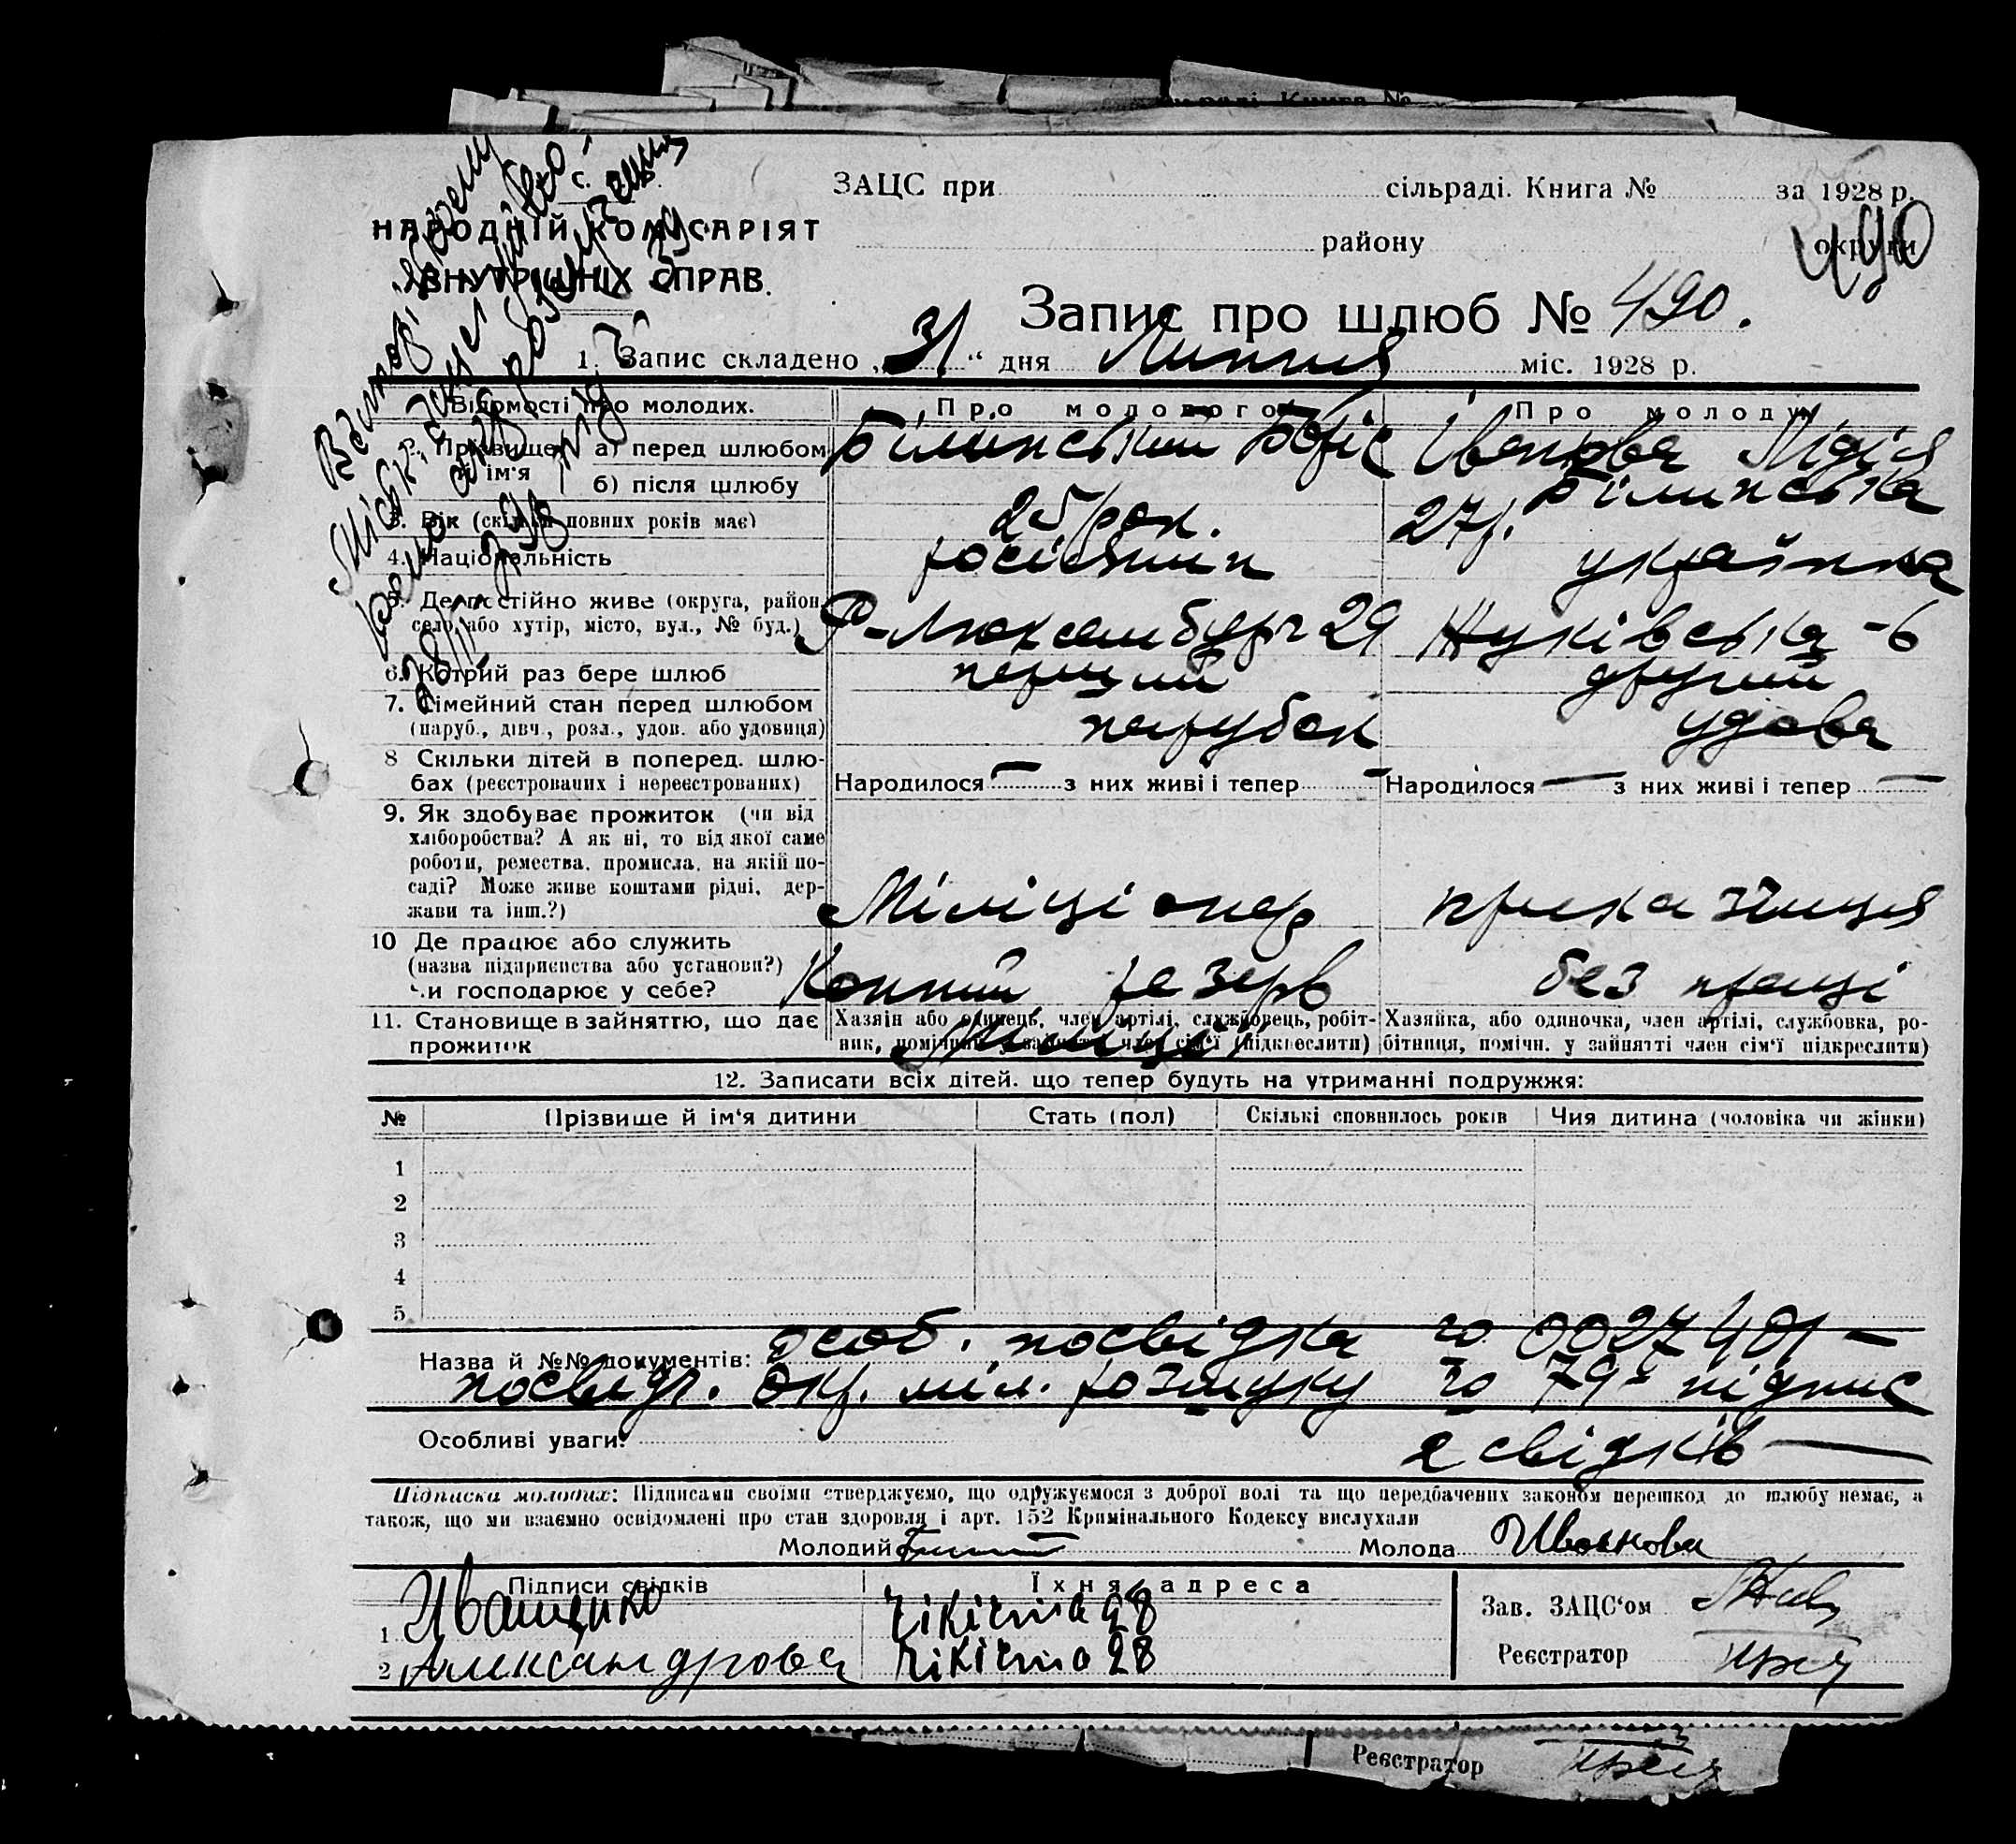 ЗАЦС при сільраді. Книга № за 1928 р.
НАРОДНІЙ КОМІСАРІЯТ
ВНУТРІШНІХ СПРАВ.
району округи
490
Запис про шлюб № 490.
1. Запис складено „31“ дня Липня міс. 1928 р.
Відомості про молодих. Про молодого Про молоду
2. Прізвище й ім'я а) перед шлюбом Білинський Боріс Іванова Лідія
б) після шлюбу Білинська
3. Вік (скільки повних років має) 25 рок. 27 р.
4. Національність росіянин українка
5. Де постійно живе (округа, район,
село, або хутір, місто, вул., № буд.) Р-Люксембург 29 Жуківська-6
6. Котрий раз бере шлюб перший другий
7. Сімейний стан перед шлюбом
(паруб., дівч., розл., удов. або удовиця) парубок удова
8 Скільки дітей в поперед. шлю-
бах (реєстрованих і нереєстрованих) Народилося — з них живі і тепер — Народилося — з них живі і тепер —
9. Як здобуває прожиток (чи від
хліборобства? А як ні, то від якої саме
роботи, ремества, промисла, на якій по-
саді? Може живе коштами рідні, дер-
жави та інш.?) Міліціонер приказчиця
10 Де працює або служить
(назва підприємства або установи?)
чи господарює у себе? Конний резерв без праці
Міліції
11. Становище в зайняттю, що дає
прожиток
Хазяїн або одинець, член артілі, службовець, робіт-
ник, помічник у зайнятті член сім'ї (підкреслити)
Хазяйка, або одиночка, член артілі, службовка, ро-
бітниця, помічн. у зайнятті член сім'ї підкреслити)
12. Записати всіх дітей. що тепер будуть на утриманні подружжя:
№ Прізвище й ім'я дитини Стать (пол) Скількі сповнилось років Чия дитина (чоловіка чи жінки)
1
2
3
4
5
Назва й №№ документів: особ. посвідка чо 0027401 —
посвідч. Окр. міл. розшуку чо 79 - підпис
Особливі уваги: 2 свідків —
Підписка молодих: Підписами своїми стверджуємо, що одружуємося з доброї волі та що передбачених законом перешкод до шлюбу немає, а
також, що ми взаємно освідомлені про стан здоровля і арт. 152 Кримінального Кодексу вислухали
Молодий Молода Иванова
Підписи свідків Їхня адреса
1 Иващенко 28
2 Александрова 28
Зав. ЗАЦС'ом
Реєстратор
Реєстратор